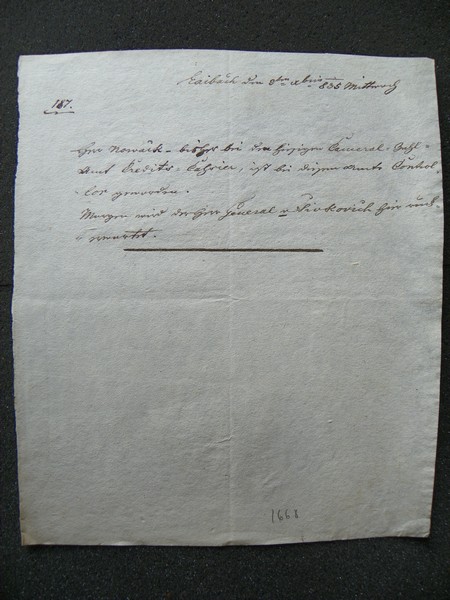 Laibach den 8ten Xbris 836 Mittwoch
187.
Herr Nowack - bisher bei dem hiesigen Cameral-Zahl-
Amt Kredits-Cassier, ist bei diesem Amte Control-
lor geworden.
Morgen wird der Herr General v Zivkovich hier
erwartet.
1668